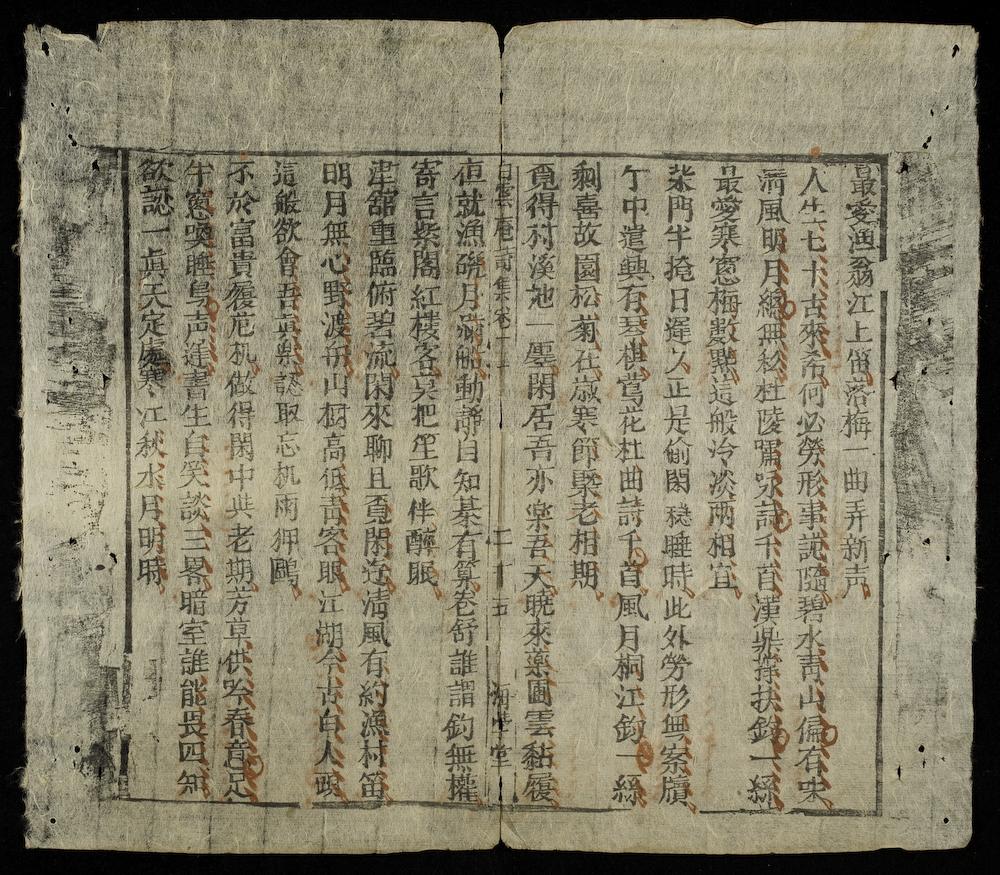 最愛漁翁江上笛落梅一曲弄新声
人生七十古來希何必勞形事詭隨碧水青山偏有楽
清風明月總無私杜陵嘯咏詩千首漢鼎撑扶釣一絲
最愛寒窓梅數點這般冷淡兩相宜
柴門半掩日遲〻正是偷閑穏睡時此外勞形無案牘
个中遣興有琴棋鴬花杜曲詩千首風月桐江釣一絲
剩喜故園松菊在歲寒節操老相期
覓得村溪地一廛閑居吾亦楽吾天曉來薬圃雲黏履
白雲庵詩集卷 二十五 海學堂
夜就漁磯月滿船動靜自知棊有筭卷舒誰謂釣無權
寄言紫閣紅樓客莫把笙歌伴醉眠
津舘重臨俯碧流閑來聊且覓閑遊清風有約漁村笛
明月無心野渡舟山樹高低青客眼江湖今古白人頭
這般欲會吾眞楽認取忘机雨狎鷗
不於富貴履危机做得閑中與老期芳草供吟春意足
午窓喚睡鳥声遲書生自笑談三畧暗室誰能畏四知
欲認一眞天定處寒江秋水月明時